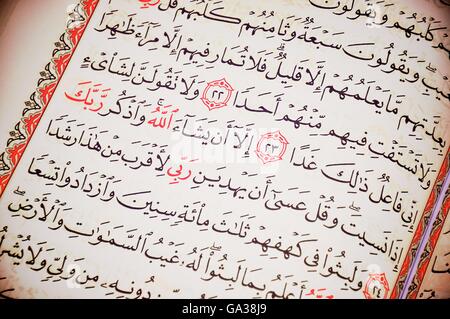 كَلْبُهُمْ وَيَقُولُونَ
بِالْغَيْبِ وَيَقُولُونَ سَبْعَةٌ وَثَامِنُهُمْ كَلْبُهُمْ قُلْ رَبِّي
بِعِدَّتِهِمْ مَا يَعْلَمُهُمْ إِلَّا قَلِيلٌ فَلَا تُمَارِ فِيهِمْ إِلَّا مِرَاءً ظَاهِرًا
وَلَا تَسْتَفْتِ فِيهِمْ مِنْهُمْ أَحَدًا ٢٢ وَلَا تَقُولَنَّ لِشَاىْءٍ
إِنِّي فَاعِلٌ ذَلِكَ غَدًا ٢٣ إِلَّا أَنْ يَشَاءَ اللَّهُ وَاذْكُرْ رَبَّكَ
إِذَا نَسِيتَ وَقُلْ عَسَى أَنْ يَهْدِيَنِ رَبِّي لِأَقْرَبَ مِنْ هَذَا رَشَدًا
٢٤ وَلَبِثُوا فِي كَهْفِهِمْ ثَلَاثَ مِائَةٍ سِنِينَ وَازْدَادُوا تِسْعًا
اللَّهُ أَعْلَمُ بِمَا لَبِثُوا لَهُ غَيْبُ السَّمَوَاتِ وَالْأَرْضِ
دُونِهِ مِنْ وَلِيٍّ وَلَا
alamy
Image ID: GA38J9
www.alamy.com